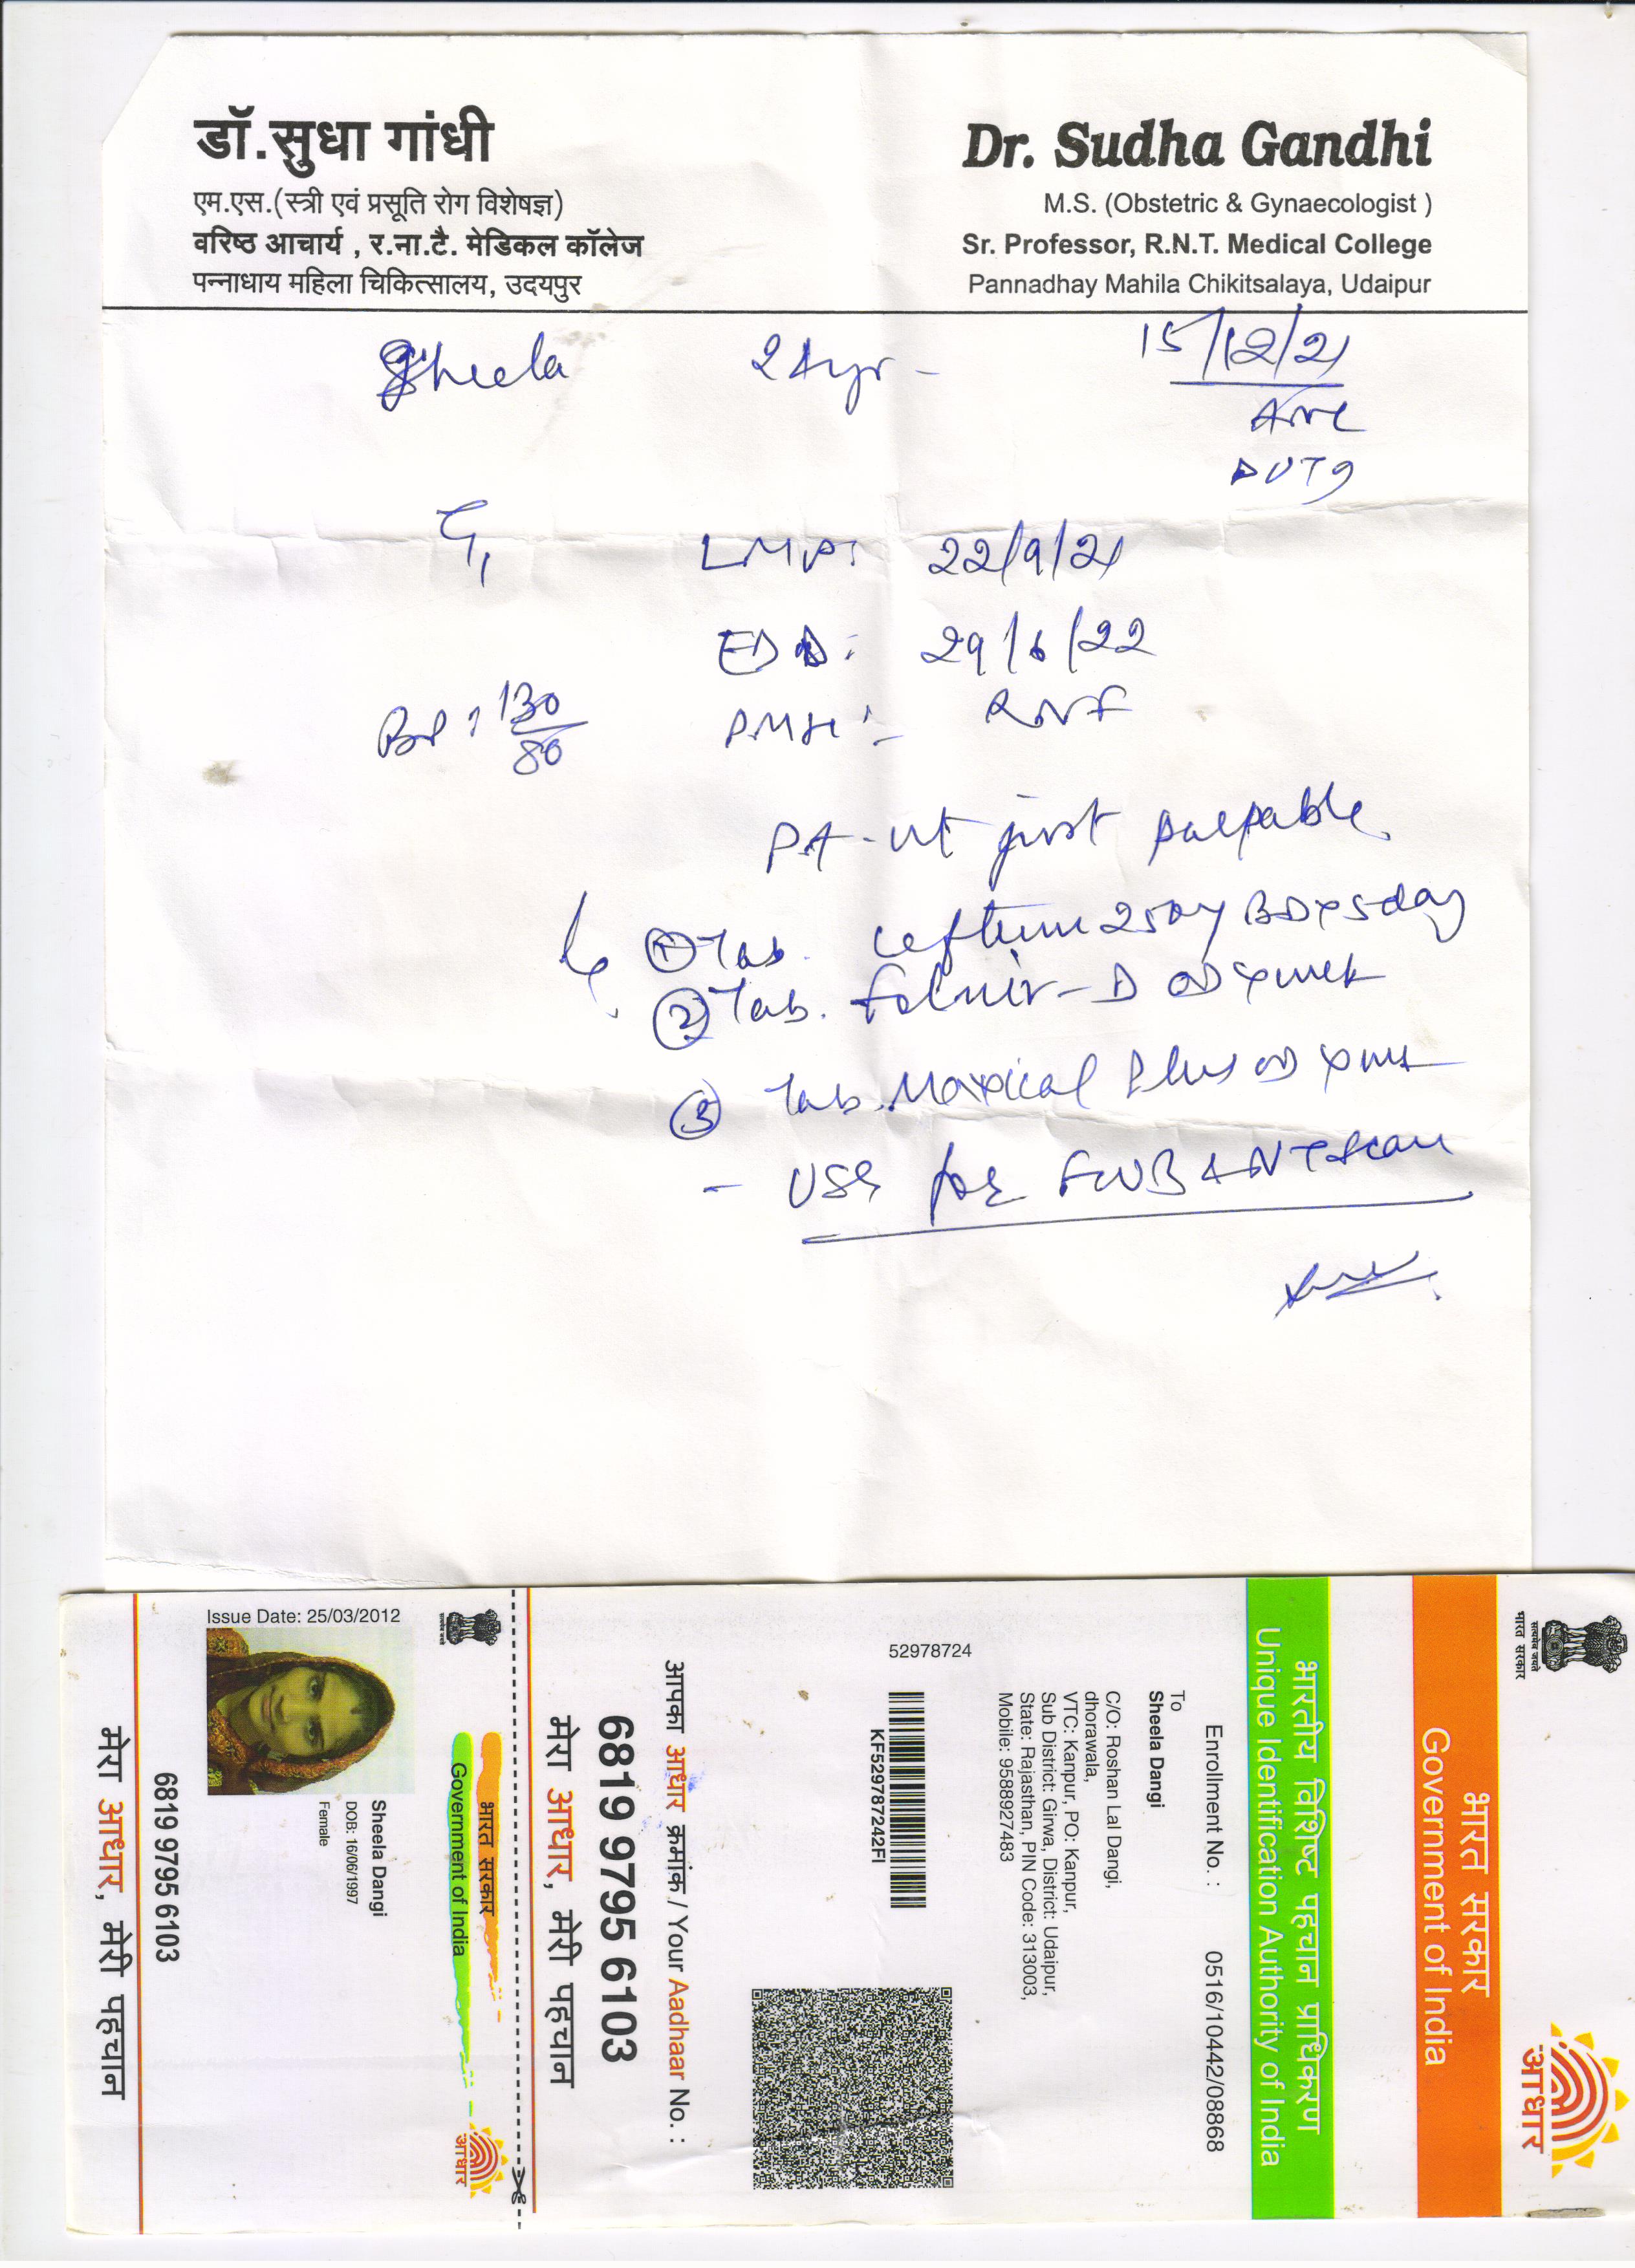 डॉ.सुधा गांधी
एम.एस.(स्त्री एवं प्रसूति रोग विशेषज्ञ)
वरिष्ठ आचार्य , र.ना.टै. मेडिकल कॉलेज
पन्नाधाय महिला चिकित्सालय, उदयपुर
Dr. Sudha Gandhi
M.S. (Obstetric & Gynaecologist )
Sr. Professor, R.N.T. Medical College
Pannadhay Mahila Chikitsalaya, Udaipur
Sheela 24yr - 15/12/21
LMP: 22/9/21
EDD: 29/6/22
BP: 130/80 PMH:-
PA - ut just palpable
① Tab. Ceftum 250mg BD x 5day
② Tab. Folnir-D OD x
③ Tab. Maxical Plus OD x
- USG for FWB & NT scan
भारत सरकार
सत्यमेव जयते
भारत सरकार
Government of India
आधार
भारतीय विशिष्ट पहचान प्राधिकरण
Unique Identification Authority of India
Enrollment No. : 0516/10442/08868
To
Sheela Dangi
C/O: Roshan Lal Dangi,
dhorawala,
VTC: Kanpur, PO: Kanpur,
Sub District: Girwa, District: Udaipur,
State: Rajasthan, PIN Code: 313003,
Mobile: 9588927483
52978724
KF529787242FI
आपका आधार क्रमांक / Your Aadhaar No. :
6819 9795 6103
मेरा आधार, मेरी पहचान
भारत सरकार
Government of India
आधार
Issue Date: 25/03/2012
Sheela Dangi
DOB: 16/06/1997
Female
6819 9795 6103
मेरा आधार, मेरी पहचान